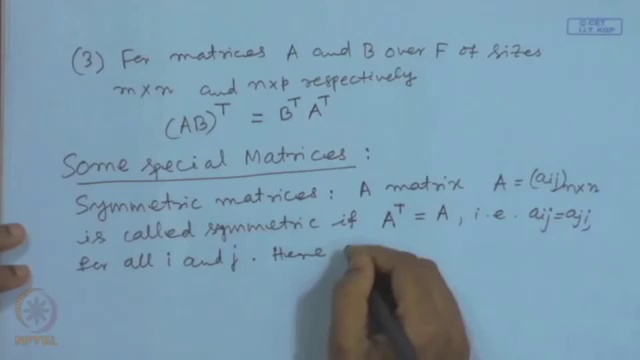 © CET
I.I.T. KGP
(3) For matrices A and B over F of sizes
m×n and n×p respectively
(AB)^T = B^T A^T
Some special Matrices :
Symmetric matrices : A matrix A = (aij)n×n
is called symmetric if A^T = A , i.e. aij = aji
for all i and j . Here
NPTEL